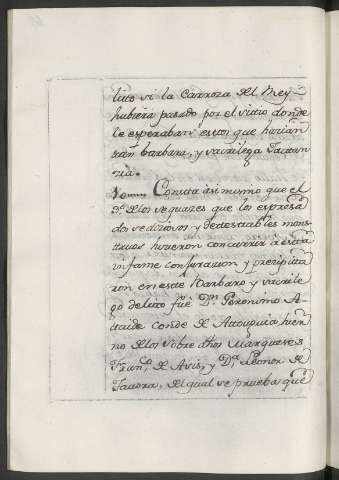 luto si la Carroza del Rey
hubiera pasado por el sitio donde
le esperaban estos que harian
tan barbara, y sacrilega
10. Consta asi mismo que el
3º delos sequazes que los expresa
dos sediciosos y detestables mons
truos hicieron concurrir á esta
infame conjuracion y precipita
ron en este Barbaro y sacrile
go delito fué Dn. Geronimo A
taide Conde de Atouguia hier
no delos sobre dhos Marqueses
Franco. de Asis, y Da. Leonor de
Tavora, del qual se prueba que